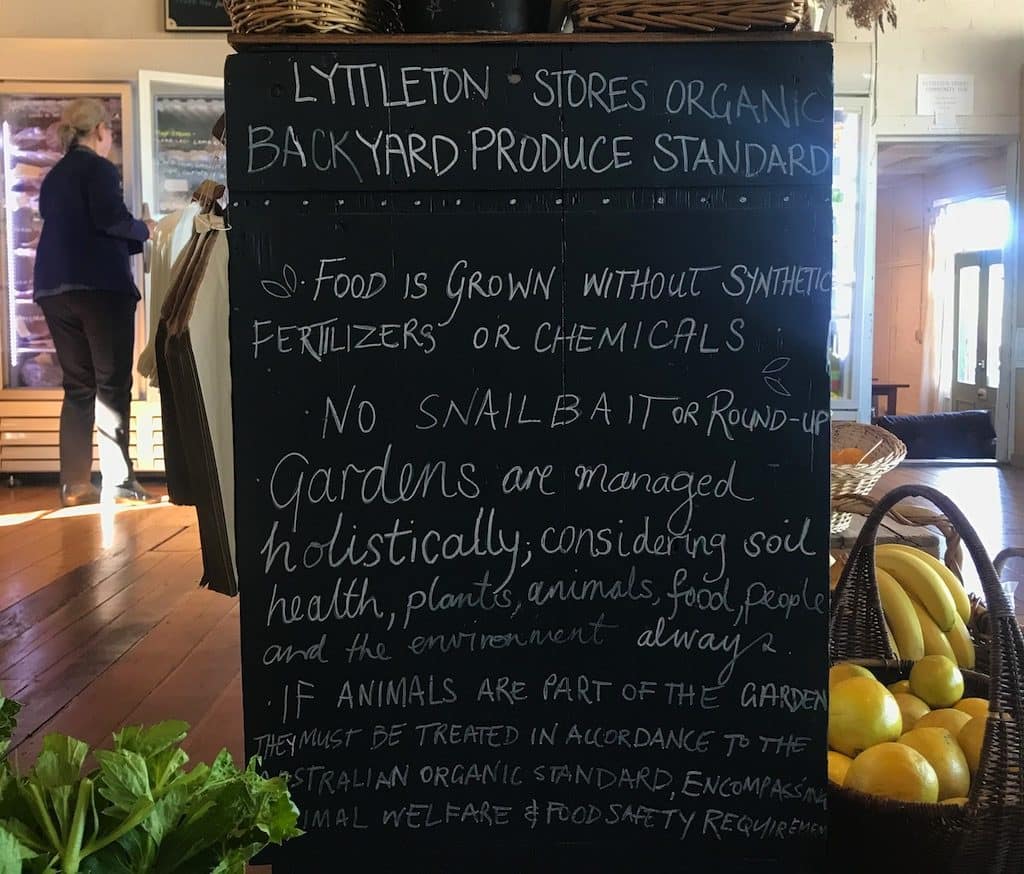 LYTTLETON STORES ORGANIC
BACKYARD PRODUCE STANDARD
· FOOD IS GROWN WITHOUT SYNTHETIC
FERTILIZERS OR CHEMICALS
· NO SNAILBAIT OR ROUND-UP
Gardens are managed
holistically; considering soil
health, plants, animals, food, people
and the environment always.
· IF ANIMALS ARE PART OF THE GARDEN
THEY MUST BE TREATED IN ACCORDANCE TO THE
AUSTRALIAN ORGANIC STANDARD, ENCOMPASSING
ANIMAL WELFARE & FOOD SAFETY REQUIREMEN